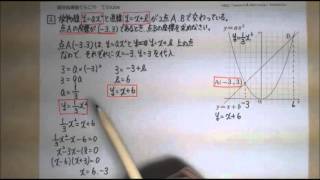 放物線y=ax²と直線y=x+bが2点A.Bで交わっている。
点Aの座標が(-3,3)であるとき、点Bの座標を求めよ。
点A(-3,3)は、y=ax²とy=x+b上の点
なので、それぞれにx=-3,y=3を代入
3=a×(-3)²
3=-3+b
3=9a
b=6
a=1/3
y=x+6
y=1/3x²
1/3x²=x+6
1/3x²-x-6=0
x²-3x-18=0
(x-6)(x+3)=0
x=6.-3
y
y=1/3x²
B
A(-3,3)
6
x
y=ax+b
y=x+6